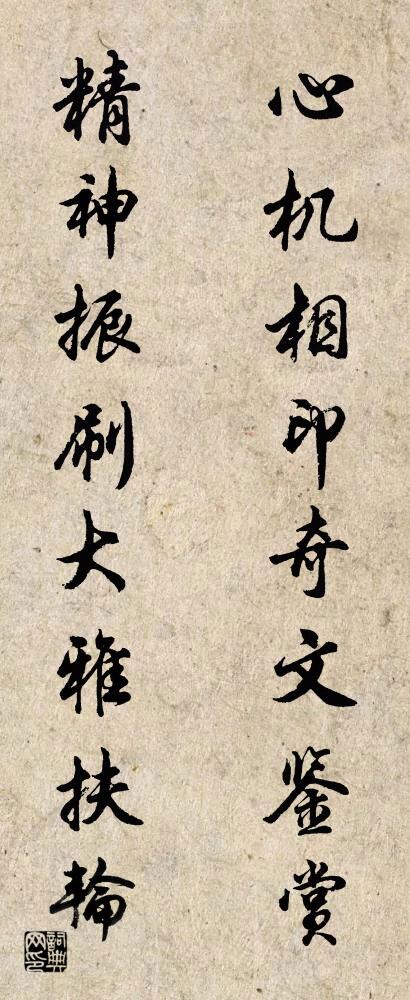 心机相印奇文鉴赏
精神振刷大雅扶輪
詞典网印